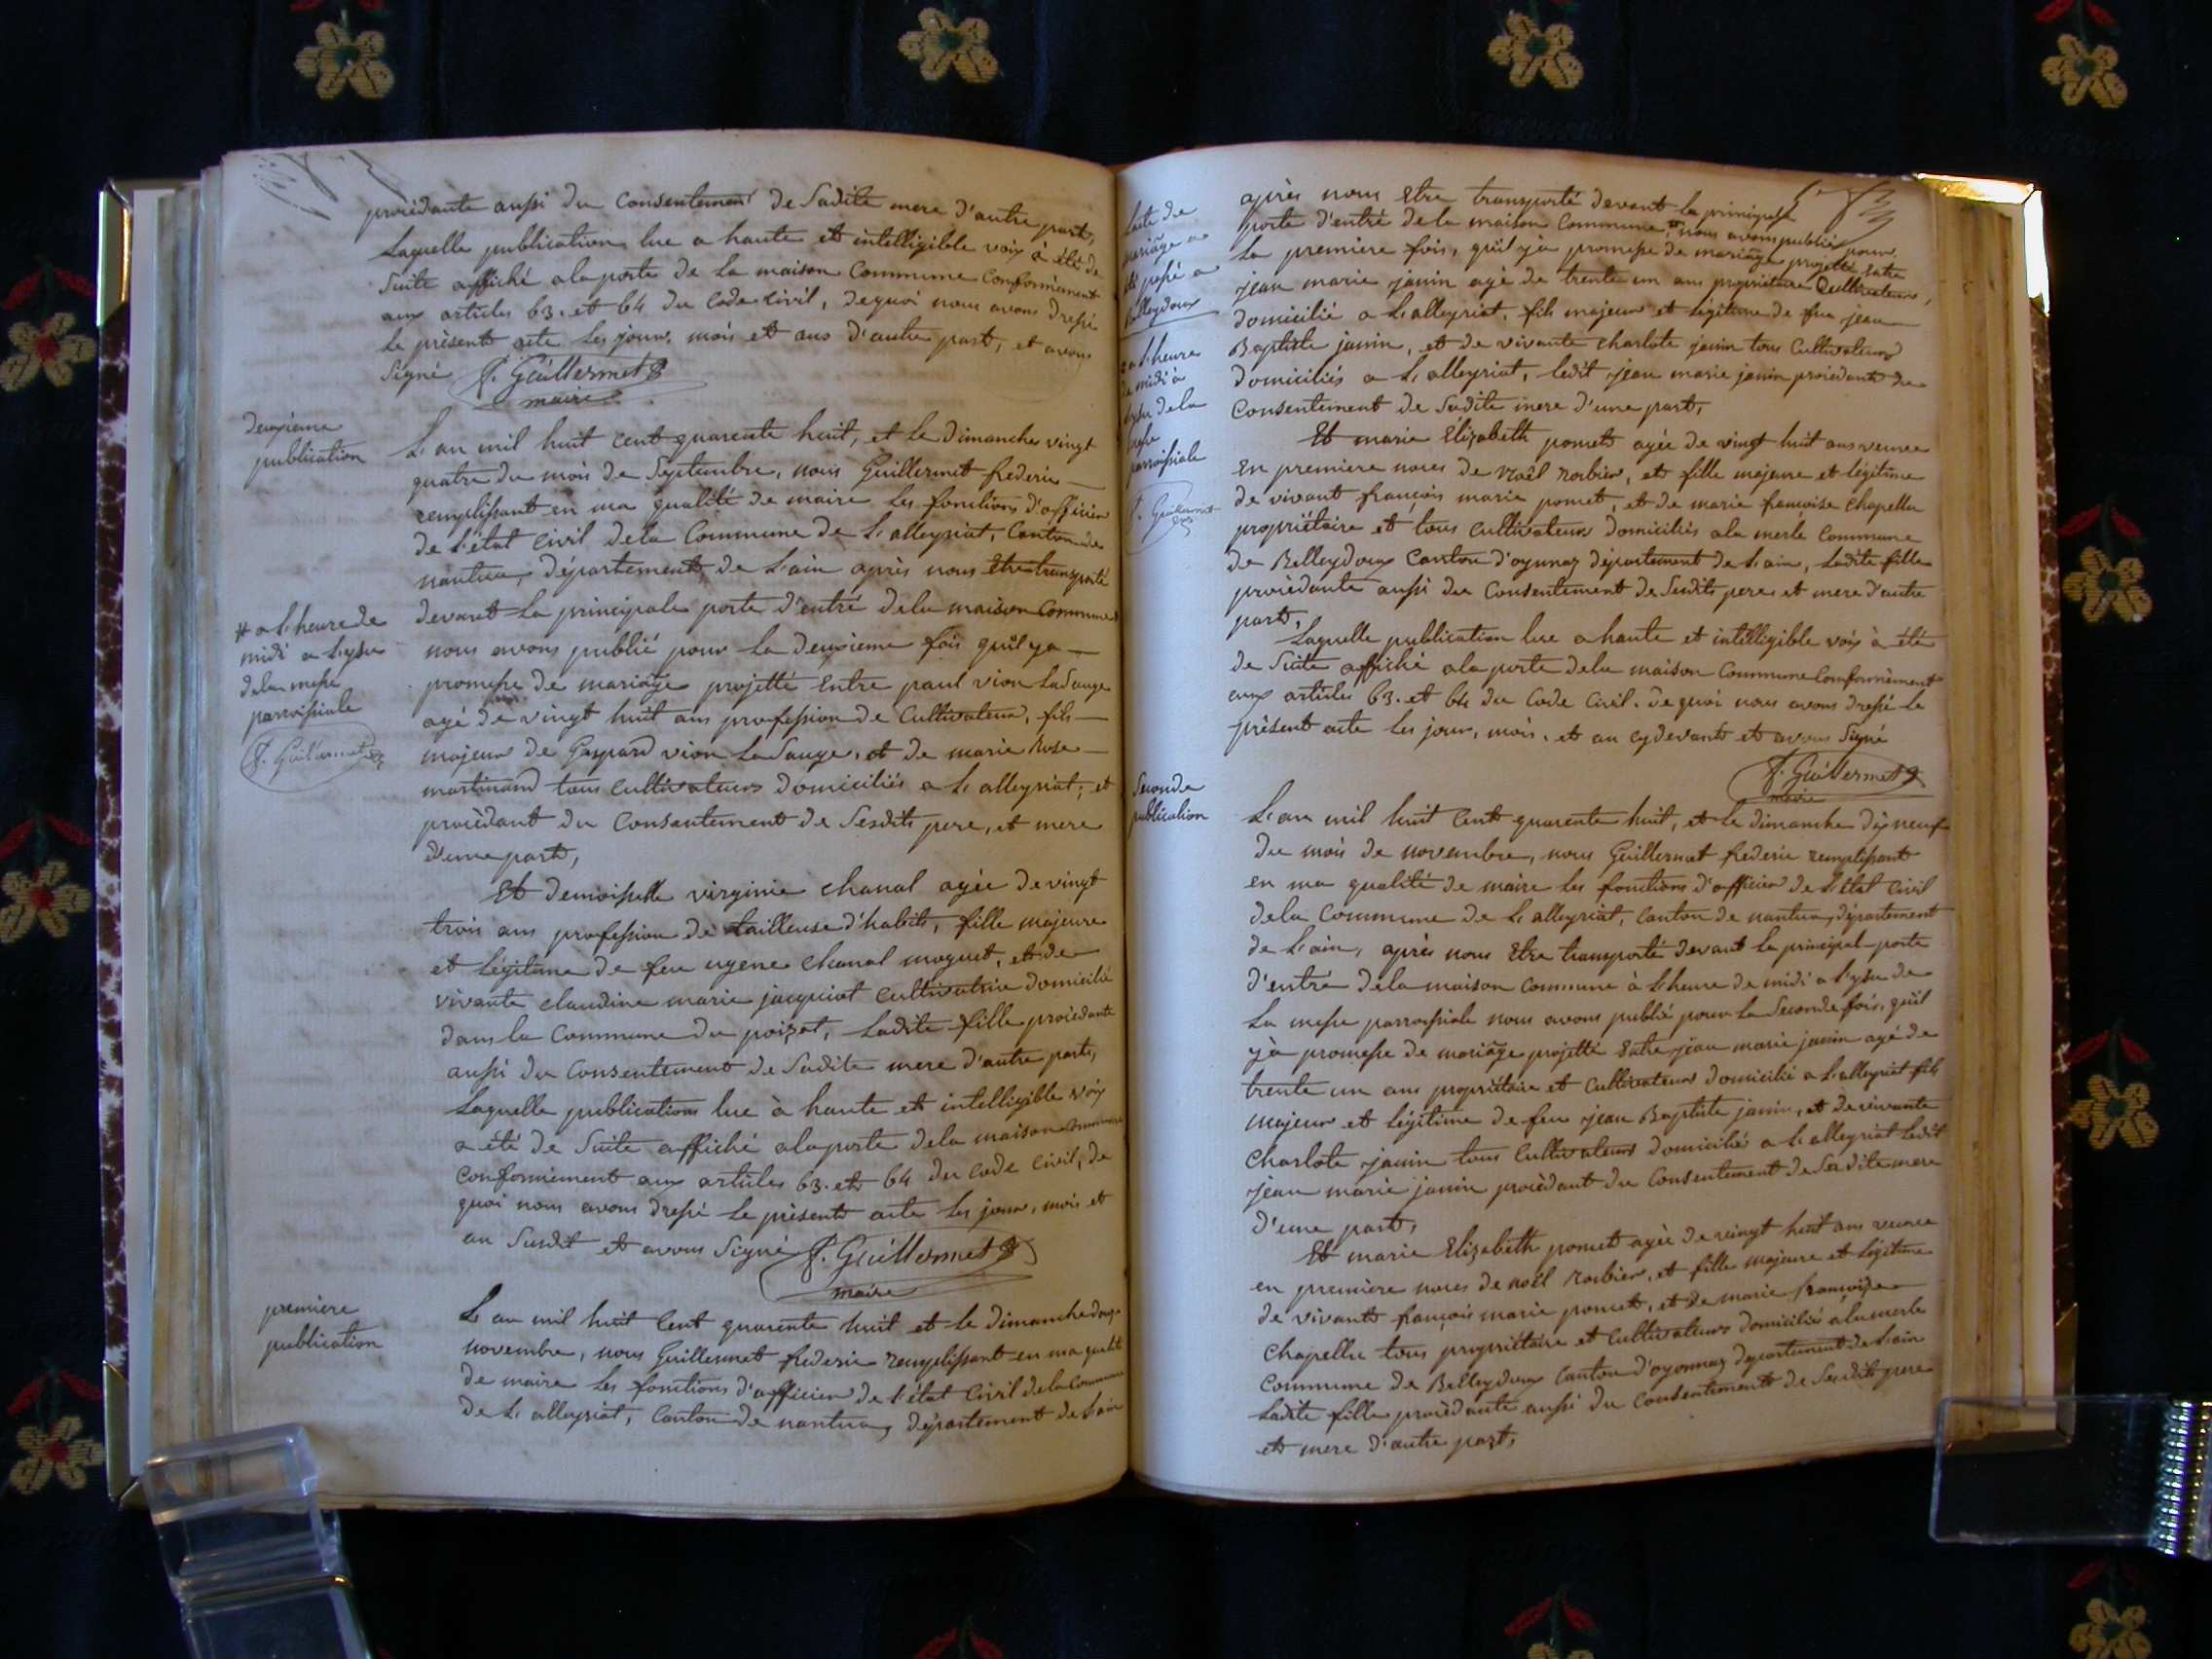 procédante aussi du Consentement de Sadite mere d'autre part,
Laquelle publication lue a haute et intelligible voix à été de
Suite affiché a la porte de la maison Commune Conformément
aux articles 63. et 64 du Code civil, dequoi nous avons dressé
le présent acte les jour, mois et ans d'autre part, et avons
Signé F. Guillermet
maire
deuxième
publication
L'an mil huit cent quarente huit, et le dimanche vingt
quatre du mois de Septembre, nous Guillermet frederic
remplissant en ma qualité de maire les fonctions d'officier
de l'état Civil de la Commune de L'alleyriat, Canton de
nantua, département de L'ain après nous être transporté
devant la principale porte d'entré dela maison Commune
# a l'heure de
midi a l'yssu
dela messe
parroissiale
F. Guillermet
nous avons publié pour la deuxième fois qu'il y a
promesse de mariage projetté Entre paul vion LaSauge
agé de vingt huit ans profession de Cultivateur, fils
majeur de Gaspard vion LaSauge, et de marie Rose
martinand tous cultivateurs domiciliés a L'alleyriat, et
procèdant du Consentement de Sesdits pere, et mere
d'une part,
Et demoiselle virginie Chanal agée de vingt
trois ans profession de tailleuse d'habits, fille majeure
et Légitime de feu ugene Chanal moguet, et de
vivante claudine marie jacquiot cultivatrice domicilié
dans la Commune du poizat, Ladite fille procédante
aussi du Consentement de Sadite mere d'autre part,
Laquelle publication lue à haute et intelligible voix
a été de Suite affiché a la porte dela maison Commune
Conformément aux articles 63. et 64 du Code Civil, de
quoi nous avons dressé le présent acte les jour, mois et
an Susdit et avons Signé F. Guillermet
maire
première
publication
L'an mil huit Cent quarente huit et le dimanche douze
novembre, nous Guillermet frederic remplissant en ma qualité
de maire les fonctions d'officier de l'état Civil dela Commune
de L'alleyriat, Canton de nantua, département de L'ain
après nous Etre transporté devant la principale
porte d'entré dela maison Commune, # nous avons publié pour
La première fois, qu'il y à promesse de mariage projetté Entre
jean marie janin agé de trente un ans propriétaire Cultivateur,
domicilié a L'alleyriat, fils majeur et Légitime de feu jean
Baptiste janin, et de vivante charlote janin tous Cultivateurs
domiciliés a L'alleyriat, ledit jean marie janin procédant du
Consentement de Sadite mere d'une part,
L'acte de
mariage a
été passé a
Belleydoux
# a l'heure
de midi à
l'yssu dela
messe
parroissiale
F. Guillermet
Et marie Elizabeth pomet agée de vingt huit ans veuve
En première noces de Noël Robier, et fille majeure et Légitime
de vivant françois marie pomet, et de marie françoise Chapellu
propriétaire et tous cultivateurs domiciliés a la merle Commune
de Belleydoux Canton d'oyonnax département de L'ain, Ladite fille
procèdante aussi du Consentement de Sesdits pere, et mere d'autre
part,
Laquelle publication lue a haute et intelligible voix à été
de Suite affiché a la porte dela maison Commune Conformément
aux articles 63. et 64 du Code Civil. de quoi nous avons dressé le
présent acte les jour, mois, et an cydevant et avons Signé
F. Guillermet
maire
Seconde
publication
L'an mil huit Cent quarente huit, et le dimanche dix neuf
du mois de novembre, nous Guillermet frederic remplissant
en ma qualité de maire les fonctions d'officier de L'état Civil
dela Commune de L'alleyriat, Canton de nantua, département
de L'ain, après nous Etre transporté devant la principal porte
d'entré dela maison Commune à L'heure de midi a l'yssu de
La messe parroissiale nous avons publié pour la Seconde fois, qu'il
y à promesse de mariage projetté Entre jean marie janin agé de
trente un ans propriétaire et Cultivateur domicilié a L'alleyriat fils
majeur et Légitime de feu jean Baptiste janin, et de vivante
Charlote janin tous Cultivateurs domiciliés a L'alleyriat Ledit
jean marie janin procèdant du Consentement de Sadite mere
d'une part,
Et marie Elizabeth pomet agée de vingt huit ans veuve
en première noces de Noël Robier, et fille majeure et Légitime
de vivant françois marie pomet, et de marie françoise
Chapellu tous propriétaire et Cultivateurs domiciliés a la merle
Commune de Belleydoux Canton d'oyonnax département de L'ain
Ladite fille procèdante aussi du Consentement de Sesdits pere
et mere d'autre part,